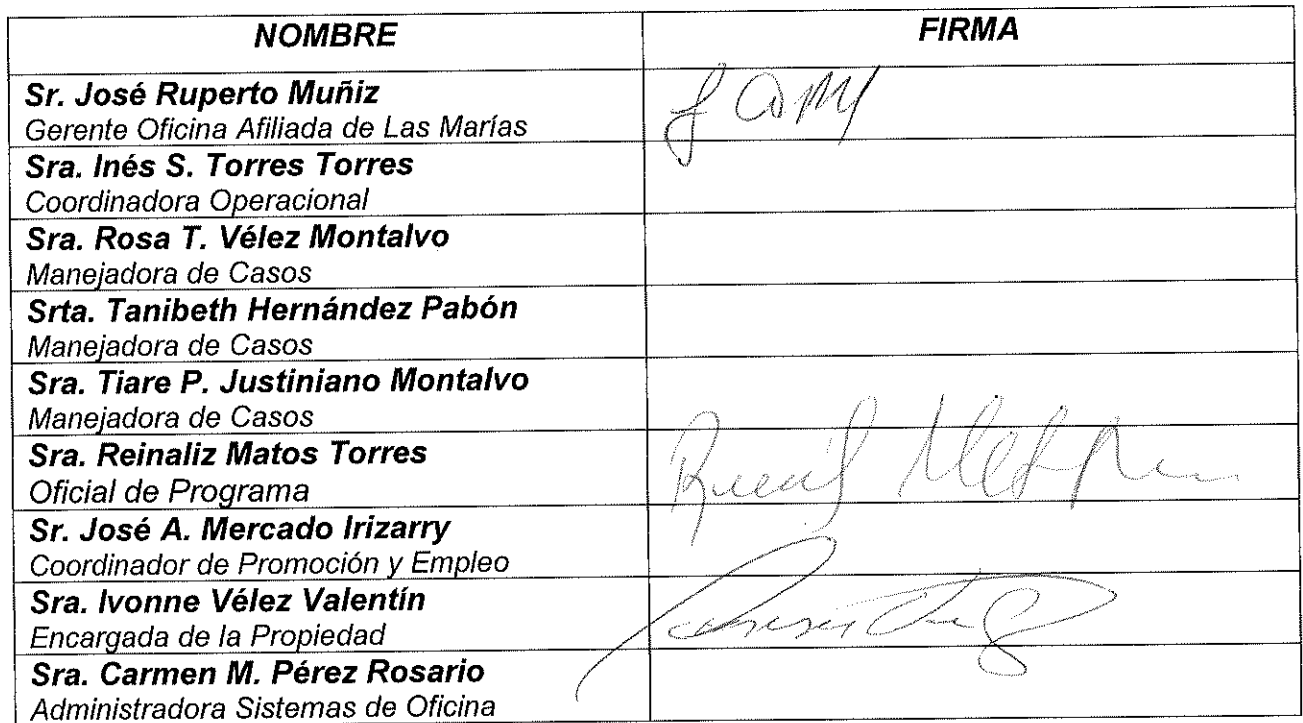 NOMBRE FIRMA
Sr. José Ruperto Muñiz
Gerente Oficina Afiliada de Las Marías
Sra. Inés S. Torres Torres
Coordinadora Operacional
Sra. Rosa T. Vélez Montalvo
Manejadora de Casos
Srta. Tanibeth Hernández Pabón
Manejadora de Casos
Sra. Tiare P. Justiniano Montalvo
Manejadora de Casos
Sra. Reinaliz Matos Torres
Oficial de Programa
Sr. José A. Mercado Irizarry
Coordinador de Promoción y Empleo
Sra. Ivonne Vélez Valentín
Encargada de la Propiedad
Sra. Carmen M. Pérez Rosario
Administradora Sistemas de Oficina